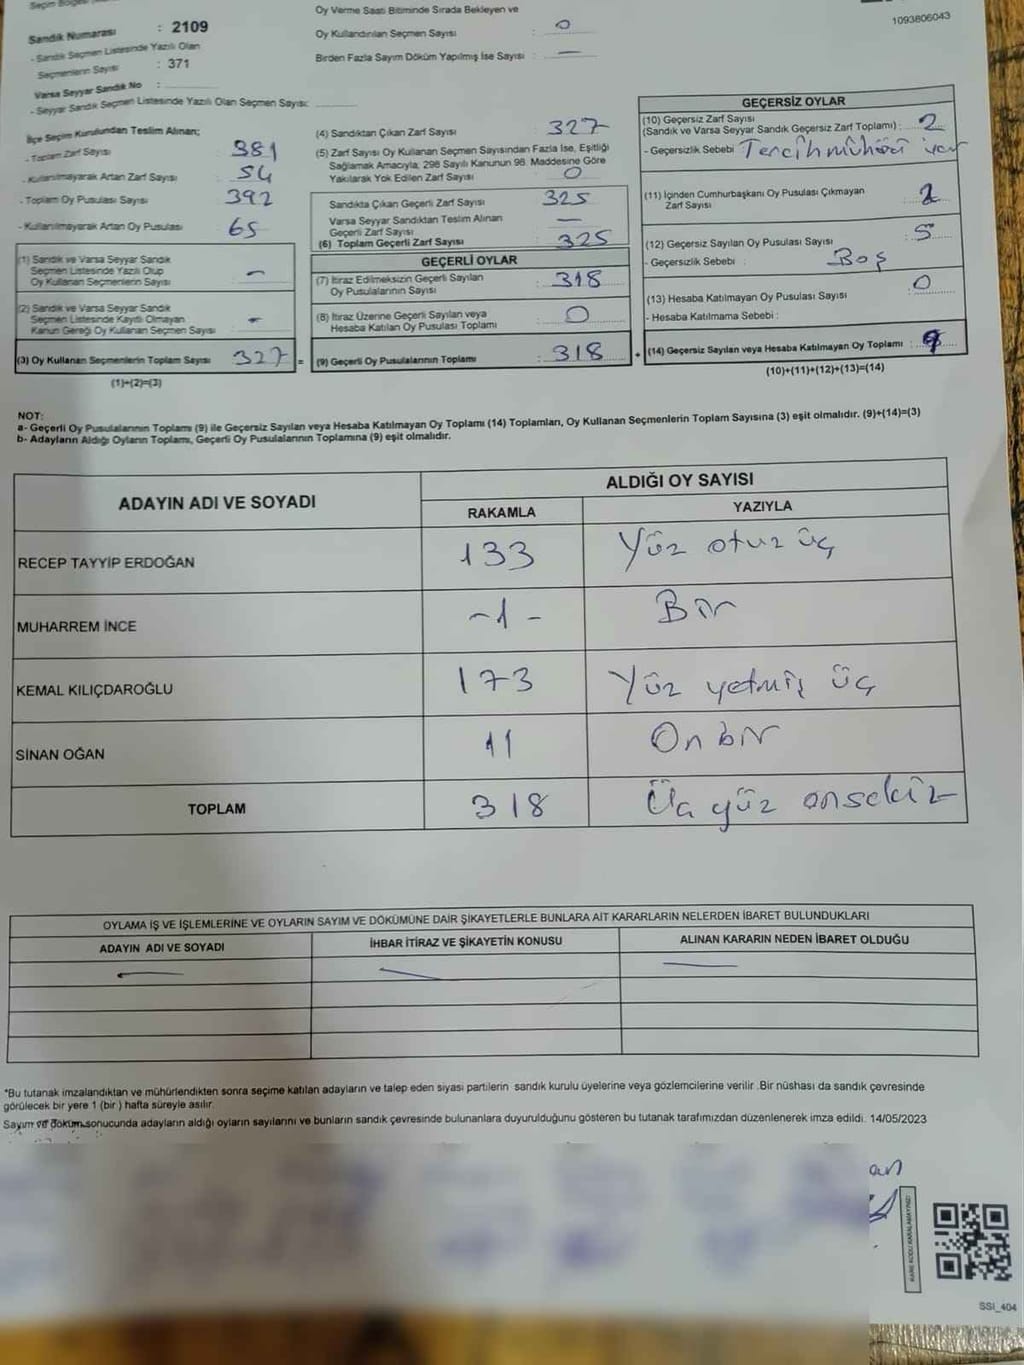 Sandık Numarası : 2109
- Sandık Seçmen Listesinde Yazılı Olan
Seçmenlerin Sayısı : 371
Varsa Seyyar Sandık No :
- Seyyar Sandık Seçmen Listesinde Yazılı Olan Seçmen Sayısı:
Oy Verme Saati Bitiminde Sırada Bekleyen ve
Oy Kullandırılan Seçmen Sayısı : 0
Birden Fazla Sayım Döküm Yapılmış İse Sayısı : —
1093806043
İlçe Seçim Kurulundan Teslim Alınan;
- Toplam Zarf Sayısı : 381
- Kullanılmayarak Artan Zarf Sayısı : 54
- Toplam Oy Pusulası Sayısı : 392
- Kullanılmayarak Artan Oy Pusulası : 65
(1) Sandık ve Varsa Seyyar Sandık
Seçmen Listesinde Yazılı Olup
Oy Kullanan Seçmenlerin Sayısı : -
(2) Sandık ve Varsa Seyyar Sandık
Seçmen Listesinde Kayıtlı Olmayan
Kanun Gereği Oy Kullanan Seçmen Sayısı : -
(3) Oy Kullanan Seçmenlerin Toplam Sayısı : 327 =
(1)+(2)=(3)
(4) Sandıktan Çıkan Zarf Sayısı : 327
(5) Zarf Sayısı Oy Kullanan Seçmen Sayısından Fazla İse, Eşitliği
Sağlamak Amacıyla, 298 Sayılı Kanunun 98. Maddesine Göre
Yakılarak Yok Edilen Zarf Sayısı : 0
Sandıkta Çıkan Geçerli Zarf Sayısı : 325
Varsa Seyyar Sandıktan Teslim Alınan
Geçerli Zarf Sayısı : —
(6) Toplam Geçerli Zarf Sayısı : 325
GEÇERLİ OYLAR
(7) İtiraz Edilmeksizin Geçerli Sayılan
Oy Pusulalarının Sayısı : 318
(8) İtiraz Üzerine Geçerli Sayılan veya
Hesaba Katılan Oy Pusulası Toplamı : 0
(9) Geçerli Oy Pusulalarının Toplamı : 318 +
GEÇERSİZ OYLAR
(10) Geçersiz Zarf Sayısı
(Sandık ve Varsa Seyyar Sandık Geçersiz Zarf Toplamı) : 2
- Geçersizlik Sebebi Tercih mühürü var
(11) İçinden Cumhurbaşkanı Oy Pusulası Çıkmayan
Zarf Sayısı : 2
(12) Geçersiz Sayılan Oy Pusulası Sayısı : 5
- Geçersizlik Sebebi : Boş
(13) Hesaba Katılmayan Oy Pusulası Sayısı : 0
- Hesaba Katılmama Sebebi :
(14) Geçersiz Sayılan veya Hesaba Katılmayan Oy Toplamı : 9
(10)+(11)+(12)+(13)=(14)
NOT:
a- Geçerli Oy Pusulalarının Toplamı (9) ile Geçersiz Sayılan veya Hesaba Katılmayan Oy Toplamı (14) Toplamları, Oy Kullanan Seçmenlerin Toplam Sayısına (3) eşit olmalıdır. (9)+(14)=(3)
b- Adayların Aldığı Oyların Toplamı, Geçerli Oy Pusulalarının Toplamına (9) eşit olmalıdır.
ADAYIN ADI VE SOYADI
ALDIĞI OY SAYISI
RAKAMLA YAZIYLA
RECEP TAYYİP ERDOĞAN 133 Yüz otuz üç
MUHARREM İNCE -1- Bir
KEMAL KILIÇDAROĞLU 173 Yüz yetmiş üç
SİNAN OĞAN 11 On bir
TOPLAM 318 Üç yüz onsekiz
OYLAMA İŞ VE İŞLEMLERİNE VE OYLARIN SAYIM VE DÖKÜMÜNE DAİR ŞİKAYETLERLE BUNLARA AİT KARARLARIN NELERDEN İBARET BULUNDUKLARI
ADAYIN ADI VE SOYADI İHBAR İTİRAZ VE ŞİKAYETİN KONUSU ALINAN KARARIN NEDEN İBARET OLDUĞU
*Bu tutanak imzalandıktan ve mühürlendikten sonra seçime katılan adayların ve talep eden siyasi partilerin sandık kurulu üyelerine veya gözlemcilerine verilir .Bir nüshası da sandık çevresinde
görülecek bir yere 1 (bir ) hafta süreyle asılır.
Sayım ve döküm sonucunda adayların aldığı oyların sayılarını ve bunların sandık çevresinde bulunanlara duyurulduğunu gösteren bu tutanak tarafımızdan düzenlenerek imza edildi. 14/05/2023
KARE KODU KARALAMAYINIZ!
SSİ_404